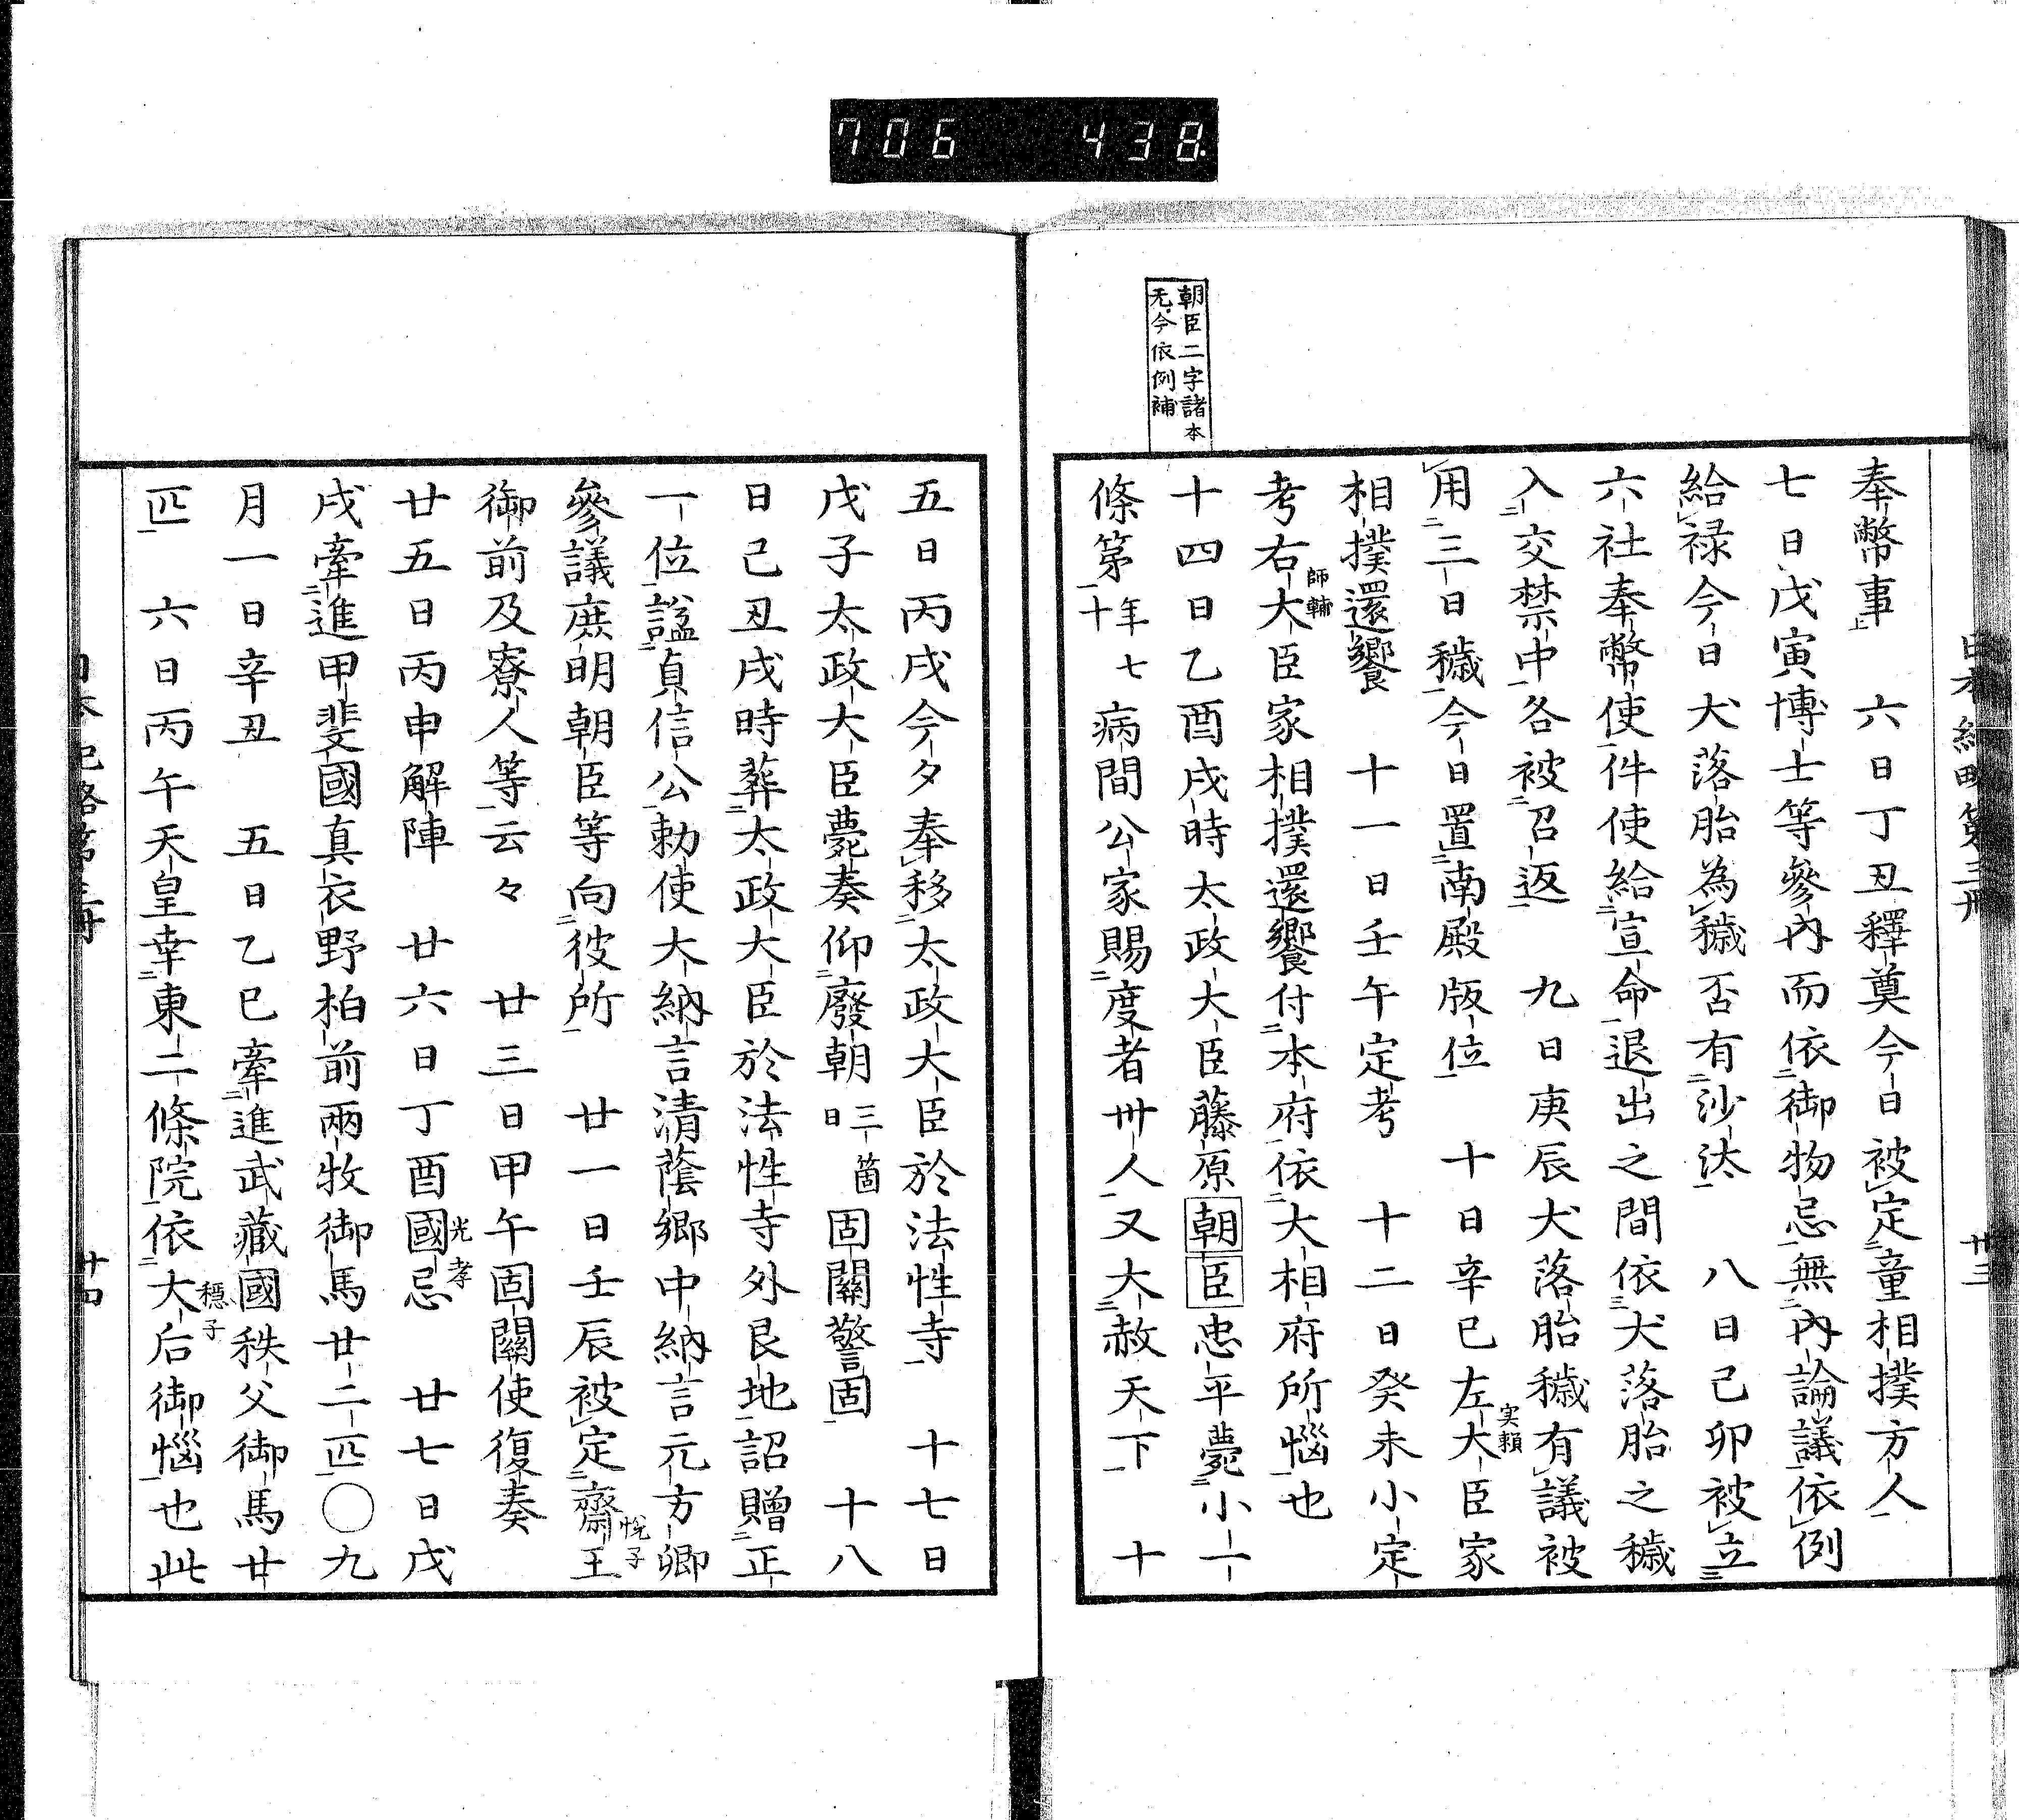 706 438
朝臣二字諸本
无今依例補
日本紀略第三册 廿三
奉幣事 六日丁丑釋奠今日被定童相撲方人
七日戊寅博士等參內而依御物忌無內論議依例
給禄今日犬落胎為穢否有沙汰 八日己卯被立
六社奉幣使件使給宣命退出之間依犬落胎之穢
入交禁中各被召返 九日庚辰犬落胎穢有議被
用三日穢今日置南殿版位 十日辛巳左大臣家
実頼
相撲還饗 十一日壬午定考 十二日癸未小定
考右大臣家相撲還饗付本府依大相府所惱也
師輔
十四日乙酉戌時太政大臣藤原朝臣忠平薨小一
條第年七十病間公家賜度者卅人又大赦天下 十
五日丙戌今夕奉移太政大臣於法性寺 十七日
戊子太政大臣薨奏仰廢朝三箇日固關警固 十八
日己丑戌時葬太政大臣於法性寺外艮地詔贈正
一位謚貞信公勅使大納言清蔭鄉中納言元方卿
參議庶明朝臣等向彼所 廿一日壬辰被定齋王
悅子
御前及寮人等云々 廿三日甲午固關使復奏
廿五日丙申解陣 廿六日丁酉國忌 廿七日戊
光孝
戌牽進甲斐國真衣野柏前兩牧御馬廿二匹〇九
月一日辛丑 五日乙巳牽進武藏國秩父御馬廿
匹 六日丙午天皇幸東二條院依大后御惱也此
穩子
日本紀略第三册 廿四